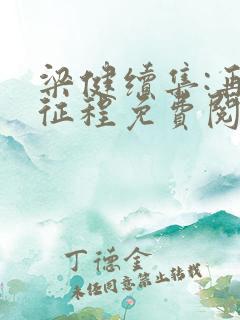 梁健续集:再
征程免费阅
丁德金
未经同意禁止转载